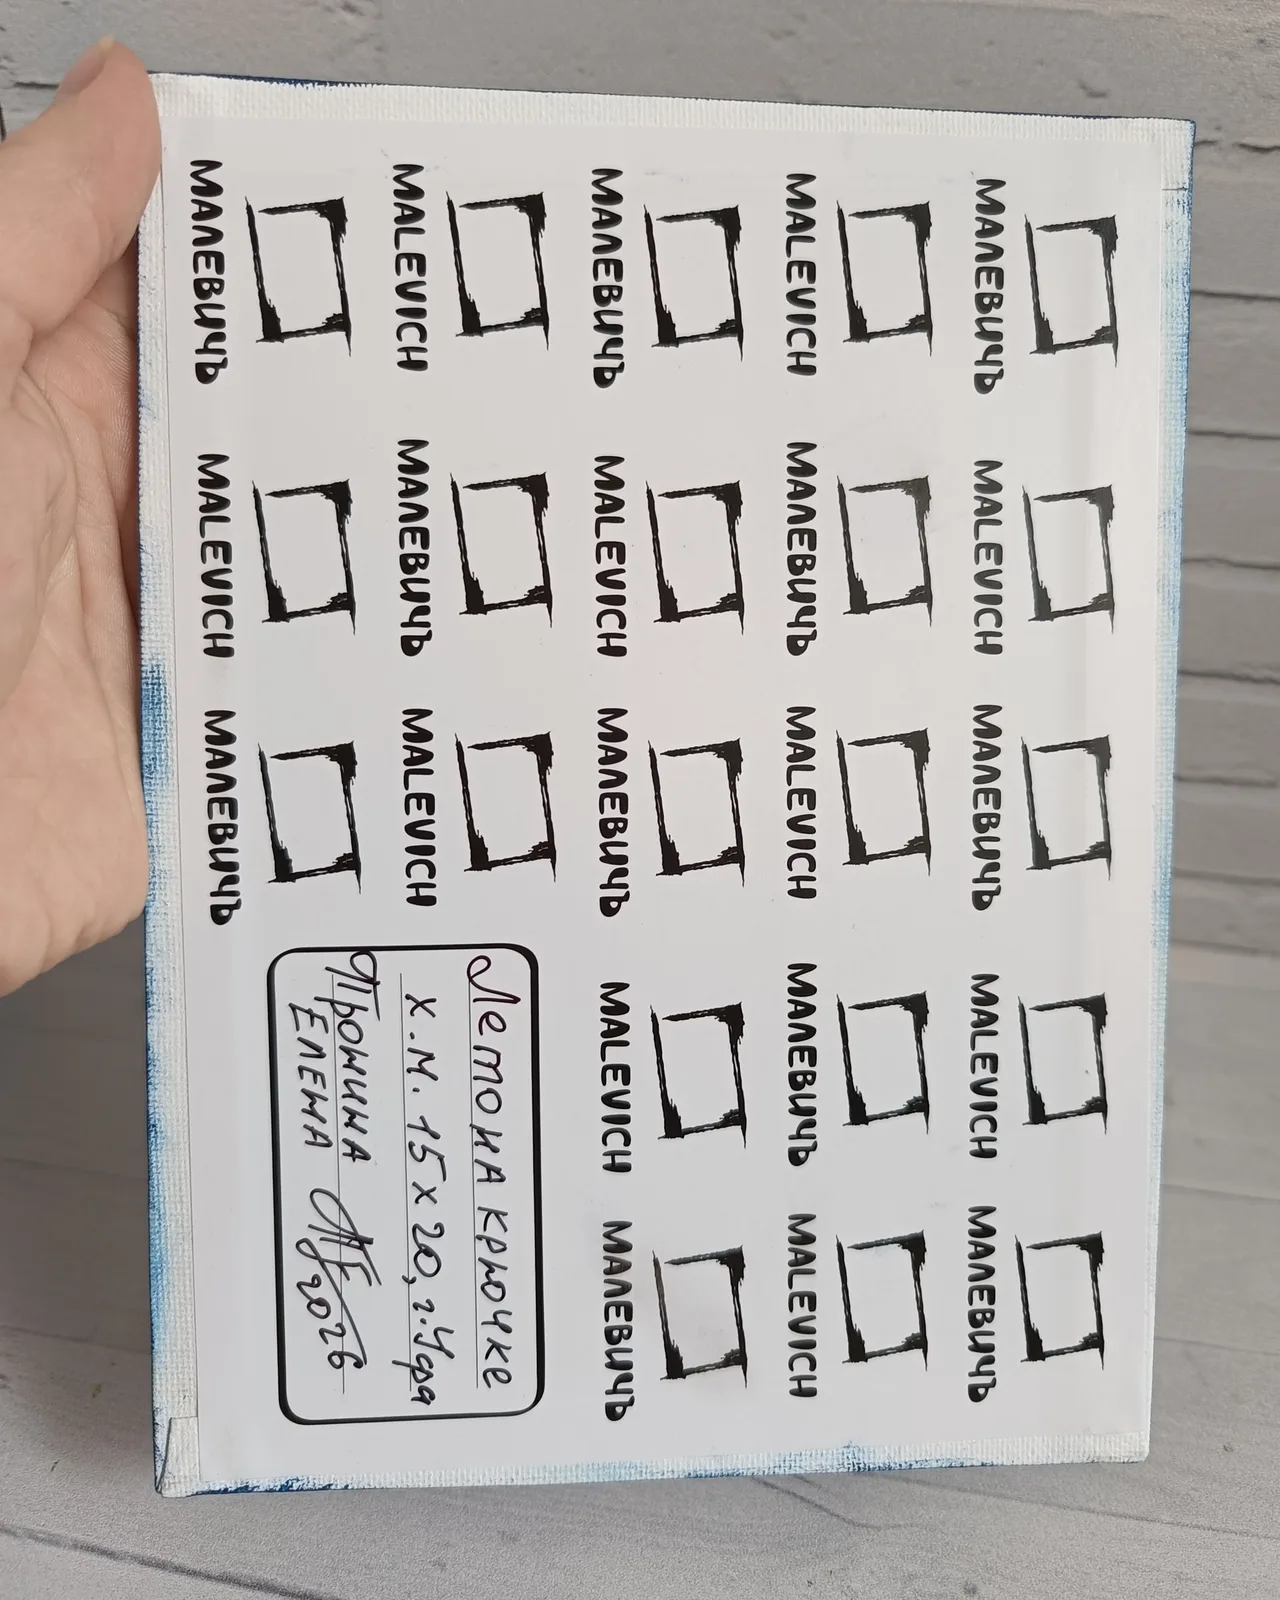 МАЛЕВИЧЪ MALEVICH МАЛЕВИЧЪ MALEVICH МАЛЕВИЧЪ
MALEVICH МАЛЕВИЧЪ MALEVICH МАЛЕВИЧЪ MALEVICH
МАЛЕВИЧЪ MALEVICH МАЛЕВИЧЪ MALEVICH МАЛЕВИЧЪ
MALEVICH МАЛЕВИЧЪ MALEVICH
МАЛЕВИЧЪ MALEVICH МАЛЕВИЧЪ
Лето на крючке
х.м. 15х20, г.Уфа
Пронина
Елена 2026